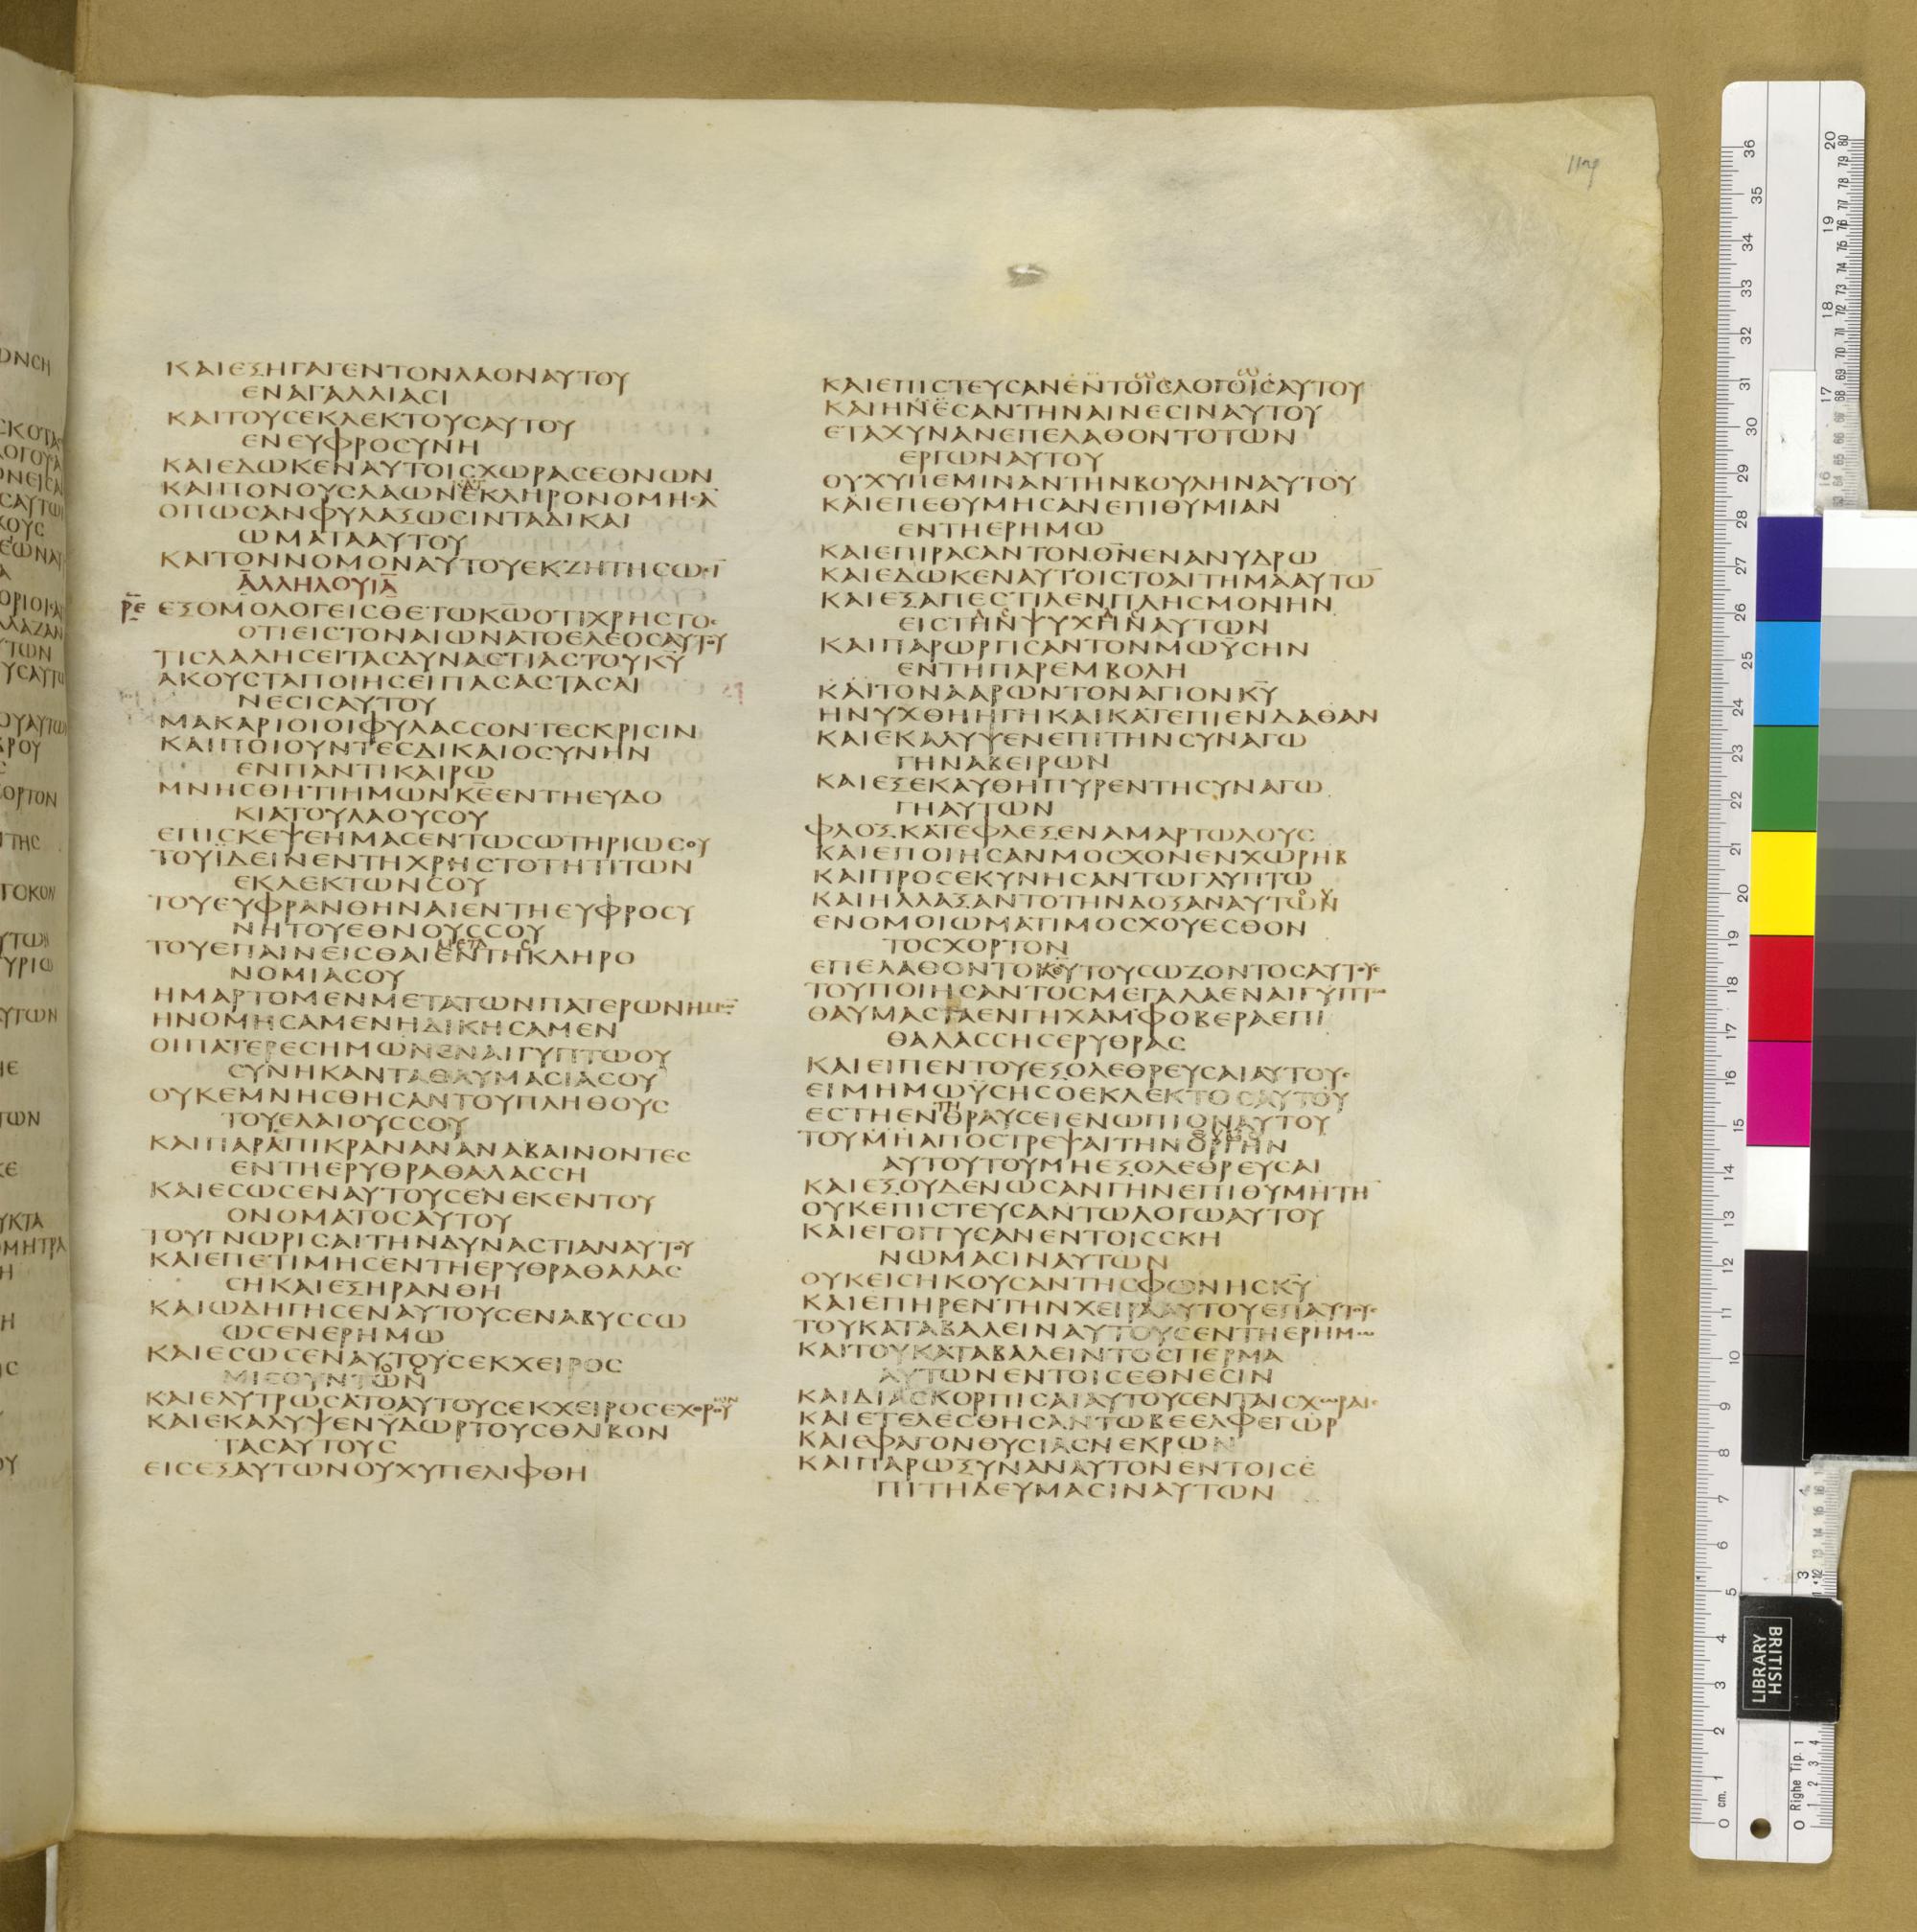 ΚΑΙΕΞΗΓΑΓΕΝΤΟΝΛΑΟΝΑΥΤΟΥ
ΕΝΑΓΑΛΛΙΑCΙ
ΚΑΙΤΟΥCΕΚΛΕΚΤΟΥCΑΥΤΟΥ
ΕΝΕΥΦΡΟCΥΝΗ
ΚΑΙΕΔΩΚΕΝΑΥΤΟΙCΧΩΡΑCΕΘΝΩΝ
ΚΑΙΠΟΝΟΥCΛΑΩΝΕΚΛΗΡΟΝΟΜΗCΑ
ΟΠΩCΑΝΦΥΛΑΞΩCΙΝΤΑΔΙΚΑΙ
ΩΜΑΤΑΑΥΤΟΥ
ΚΑΙΤΟΝΝΟΜΟΝΑΥΤΟΥΕΚΖΗΤΗCΩCΙ̅
ΑΛΛΗΛΟΥΙΑ
ΡΕ ΕΞΟΜΟΛΟΓΕΙCΘΕΤΩΚ̅Ω̅ΟΤΙΧΡΗCΤΟC
ΟΤΙΕΙCΤΟΝΑΙΩΝΑΤΟΕΛΕΟCΑΥΤΟΥ
ΤΙCΛΑΛΗCΕΙΤΑCΔΥΝΑCΤΙΑCΤΟΥΚ̅Υ̅
ΑΚΟΥCΤΑΠΟΙΗCΕΙΠΑCΑCΤΑCΑΙ
ΝΕCΙCΑΥΤΟΥ
ΜΑΚΑΡΙΟΙΟΙΦΥΛΑCCΟΝΤΕCΚΡΙCΙΝ
ΚΑΙΠΟΙΟΥΝΤΕCΔΙΚΑΙΟCΥΝΗΝ
ΕΝΠΑΝΤΙΚΑΙΡΩ
ΜΝΗCΘΗΤΙΗΜΩΝΚ̅Ε̅ΕΝΤΗΕΥΔΟ
ΚΙΑΤΟΥΛΑΟΥCΟΥ
ΕΠΙCΚΕΨΕΗΜΑCΕΝΤΩCΩΤΗΡΙΩCΟΥ
ΤΟΥΪΔΕΙΝΕΝΤΗΧΡΗCΤΟΤΗΤΙΤΩΝ
ΕΚΛΕΚΤΩΝCΟΥ
ΤΟΥΕΥΦΡΑΝΘΗΝΑΙΕΝΤΗΕΥΦΡΟCΥ
ΝΗΤΟΥΕΘΝΟΥCCΟΥ
ΤΟΥΕΠΑΙΝΕΙCΘΑΙΕΝΤΗΚΛΗΡΟ
ΝΟΜΙΑCΟΥ
ΗΜΑΡΤΟΜΕΝΜΕΤΑΤΩΝΠΑΤΕΡΩΝΗΜΩ̅
ΗΝΟΜΗCΑΜΕΝΗΔΙΚΗCΑΜΕΝ
ΟΙΠΑΤΕΡΕCΗΜΩΝΕΝΑΙΓΥΠΤΩΟΥ
CΥΝΗΚΑΝΤΑΘΑΥΜΑCΙΑCΟΥ
ΟΥΚΕΜΝΗCΘΗCΑΝΤΟΥΠΛΗΘΟΥC
ΤΟΥΕΛΑΙΟΥCCΟΥ
ΚΑΙΠΑΡΑΠΙΚΡΑΝΑΝΑΝΑΒΑΙΝΟΝΤΕC
ΕΝΤΗΕΡΥΘΡΑΘΑΛΑCCΗ
ΚΑΙΕCΩCΕΝΑΥΤΟΥCΕΝΕΚΕΝΤΟΥ
ΟΝΟΜΑΤΟCΑΥΤΟΥ
ΤΟΥΓΝΩΡΙCΑΙΤΗΝΔΥΝΑCΤΙΑΝΑΥΤΟΥ
ΚΑΙΕΠΕΤΙΜΗCΕΝΤΗΕΡΥΘΡΑΘΑΛΑC
CΗΚΑΙΕΞΗΡΑΝΘΗ
ΚΑΙΩΔΗΓΗCΕΝΑΥΤΟΥCΕΝΑΒΥCCΩ
ΩCΕΝΕΡΗΜΩ
ΚΑΙΕCΩCΕΝΑΥΤΟΥCΕΚΧΕΙΡΟC
ΜΙCΟΥΝΤΩΝ
ΚΑΙΕΛΥΤΡΩCΑΤΟΑΥΤΟΥCΕΚΧΕΙΡΟCΕΧΘΡΟΥ
ΚΑΙΕΚΑΛΥΨΕΝΥΔΩΡΤΟΥCΘΛΙΒΟΝ
ΤΑCΑΥΤΟΥC
ΕΙCΕΞΑΥΤΩΝΟΥΧΥΠΕΛΙΦΘΗ
ΚΑΙΕΠΙCΤΕΥCΑΝΕΝΤΟΙCΛΟΓΟΙCΑΥΤΟΥ
ΚΑΙΗΝΕCΑΝΤΗΝΑΙΝΕCΙΝΑΥΤΟΥ
ΕΤΑΧΥΝΑΝΕΠΕΛΑΘΟΝΤΟΤΩΝ
ΕΡΓΩΝΑΥΤΟΥ
ΟΥΧΥΠΕΜΙΝΑΝΤΗΝΒΟΥΛΗΝΑΥΤΟΥ
ΚΑΙΕΠΕΘΥΜΗCΑΝΕΠΙΘΥΜΙΑΝ
ΕΝΤΗΕΡΗΜΩ
ΚΑΙΕΠΙΡΑCΑΝΤΟΝΘ̅Ν̅ΕΝΑΝΥΔΡΩ
ΚΑΙΕΔΩΚΕΝΑΥΤΟΙCΤΟΑΙΤΗΜΑΑΥΤΩ̅
ΚΑΙΕΞΑΠΕCΤΙΛΕΝΠΛΗCΜΟΝΗΝ
ΕΙCΤΗΝΨΥΧΗΝΑΥΤΩΝ
ΚΑΙΠΑΡΩΡΓΙCΑΝΤΟΝΜΩΫCΗΝ
ΕΝΤΗΠΑΡΕΜΒΟΛΗ
ΚΑΙΤΟΝΑΑΡΩΝΤΟΝΑΓΙΟΝΚ̅Υ̅
ΗΝΥΧΘΗΗΓΗΚΑΙΚΑΤΕΠΙΕΝΔΑΘΑΝ
ΚΑΙΕΚΑΛΥΨΕΝΕΠΙΤΗΝCΥΝΑΓΩ
ΓΗΝΑΒΕΙΡΩΝ
ΚΑΙΕΞΕΚΑΥΘΗΠΥΡΕΝΤΗCΥΝΑΓΩ
ΓΗΑΥΤΩΝ
ΦΛΟΞΚΑΤΕΦΛΕΞΕΝΑΜΑΡΤΩΛΟΥC
ΚΑΙΕΠΟΙΗCΑΝΜΟCΧΟΝΕΝΧΩΡΗΒ
ΚΑΙΠΡΟCΕΚΥΝΗCΑΝΤΩΓΛΥΠΤΩ
ΚΑΙΗΛΛΑΞΑΝΤΟΤΗΝΔΟΞΑΝΑΥΤΩΝ
ΕΝΟΜΟΙΩΜΑΤΙΜΟCΧΟΥΕCΘΟΝ
ΤΟCΧΟΡΤΟΝ
ΕΠΕΛΑΘΟΝΤΟΚΥΤΟΥCΩΖΟΝΤΟCΑΥΤΟΥC
ΤΟΥΠΟΙΗCΑΝΤΟCΜΕΓΑΛΑΕΝΑΙΓΥΠΤΩ
ΘΑΥΜΑCΤΑΕΝΓΗΧΑΜΦΟΒΕΡΑΕΠΙ
ΘΑΛΑCCΗCΕΡΥΘΡΑC
ΚΑΙΕΙΠΕΝΤΟΥΕΞΟΛΕΘΡΕΥCΑΙΑΥΤΟΥC
ΕΙΜΗΜΩΫCΗCΟΕΚΛΕΚΤΟCΑΥΤΟΥ
ΕCΤΗΕΝΘΡΑΥCΕΙΕΝΩΠΙΟΝΑΥΤΟΥ
ΤΟΥΜΗΑΠΟCΤΡΕΨΑΙΤΗΝΟΡΓΗΝ
ΑΥΤΟΥΤΟΥΜΗΕΞΟΛΕΘΡΕΥCΑΙ
ΚΑΙΕΞΟΥΔΕΝΩCΑΝΓΗΝΕΠΙΘΥΜΗΤΗ̅
ΟΥΚΕΠΙCΤΕΥCΑΝΤΩΛΟΓΩΑΥΤΟΥ
ΚΑΙΕΓΟΓΓΥCΑΝΕΝΤΟΙCCΚΗ
ΝΩΜΑCΙΝΑΥΤΩΝ
ΟΥΚΕΙCΗΚΟΥCΑΝΤΗCΦΩΝΗCΚ̅Υ̅
ΚΑΙΕΠΗΡΕΝΤΗΝΧΕΙΡΑΑΥΤΟΥΕΠΑΥΤΟΥC
ΤΟΥΚΑΤΑΒΑΛΕΙΝΑΥΤΟΥCΕΝΤΗΕΡΗΜΩ
ΚΑΙΤΟΥΚΑΤΑΒΑΛΕΙΝΤΟCΠΕΡΜΑ
ΑΥΤΩΝΕΝΤΟΙCΕΘΝΕCΙΝ
ΚΑΙΔΙΑCΚΟΡΠΙCΑΙΑΥΤΟΥCΕΝΤΑΙCΧΩΡΑΙC
ΚΑΙΕΤΕΛΕCΘΗCΑΝΤΩΒΕΕΛΦΕΓΩΡ
ΚΑΙΕΦΑΓΟΝΘΥCΙΑCΝΕΚΡΩΝ
ΚΑΙΠΑΡΩΞΥΝΑΝΑΥΤΟΝΕΝΤΟΙCΕ
ΠΙΤΗΔΕΥΜΑCΙΝΑΥΤΩΝ
BRITISH
LIBRARY